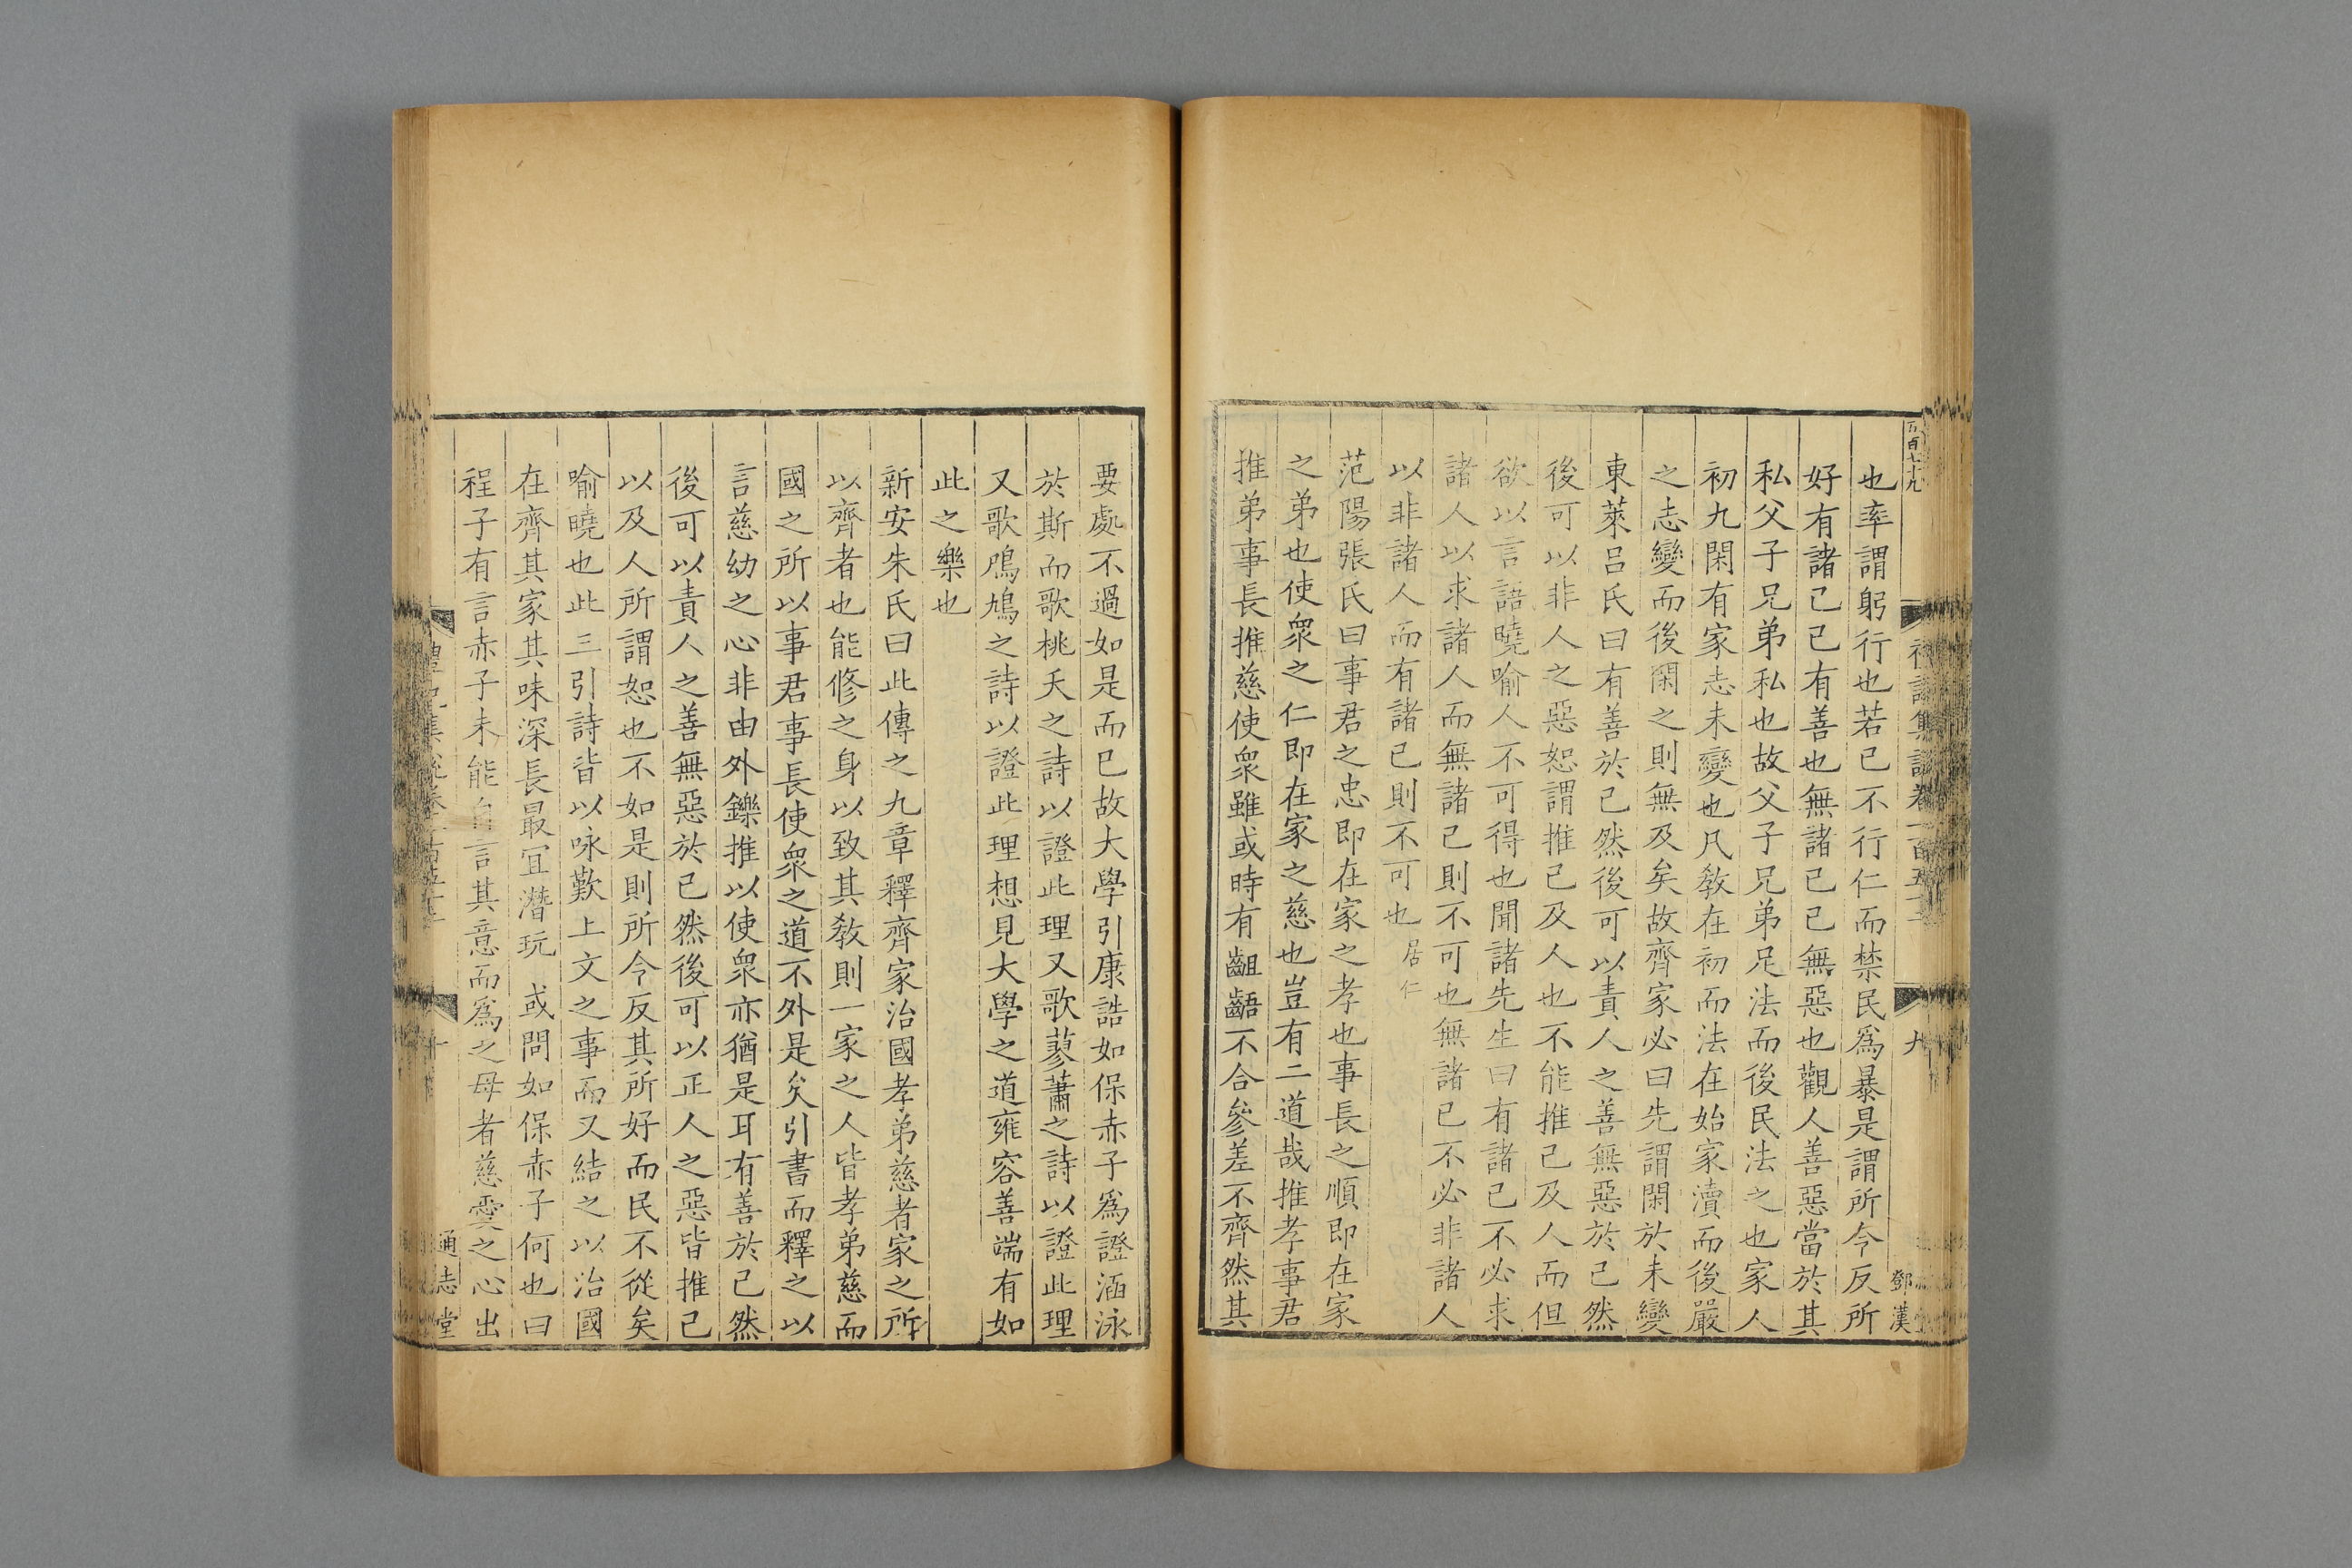 也率謂躬行也若已不行仁而禁民爲暴是謂所令反所
好有諸已已有善也無諸已已無惡也觀人善惡當於其
私父子兄弟私也故父子兄弟足法而後民法之也家人
初九閑有家志未變也凡敎在初而法在始家瀆而後嚴
之志變而後閑之則無及矣故齊家必曰先謂閑於未變
東萊呂氏曰有善於己然後可以責人之善無惡於己然
後可以非人之惡恕謂推已及人也不能推已及人而但
欲以言語曉喻人不可得也聞諸先生曰有諸己不必求
諸人以求諸人而無諸己則不可也無諸已不必非諸人
以非諸人而有諸已則不可也居仁
范陽張氏曰事君之忠即在家之孝也事長之順即在家
之弟也使衆之仁即在家之慈也豈有二道哉推孝事君
推弟事長推慈使衆雖或時有齟齬不合參差不齊然其
九
鄧漢
要處不過如是而已故大學引康誥如保赤子爲證涵泳
於斯而歌桃夭之詩以證此理又歌蓼蕭之詩以證此理
又歌鳲鳩之詩以證此理想見大學之道雍容善端有如
此之樂也
新安朱氏曰此傳之九章釋齊家治國孝弟慈者家之所
以齊者也能修之身以致其敎則一家之人皆孝弟慈而
國之所以事君事長使衆之道不外是矣引書而釋之以
言慈幼之心非由外鑠推以使衆亦猶是耳有善於己然
後可以責人之善無惡於已然後可以正人之惡皆推已
以及人所謂恕也不如是則所令反其所好而民不從矣
喻曉也此三引詩皆以咏歎上文之事而又結之以治國
在齊其家其味深長最宜潛玩　或問如保赤子何也曰
程子有言赤子未能自言其意而爲之母者慈愛之心出
十
通志堂